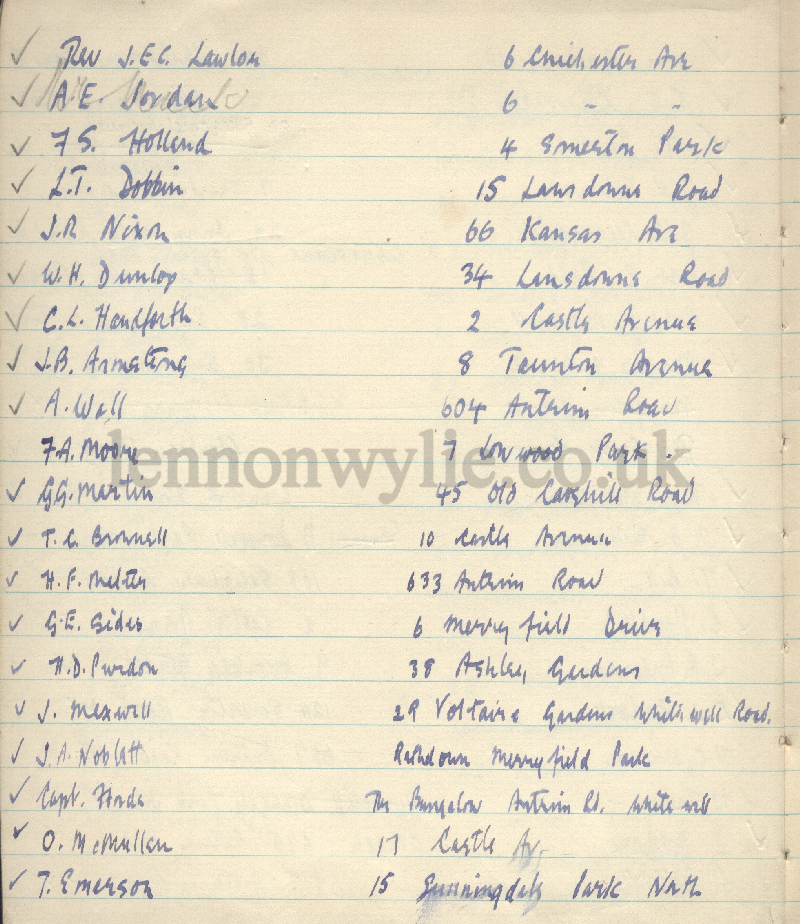 ✓ Rev J.E.C. Lawlor 6 Chichester Ave
✓ A.E. Jordan 6 " "
✓ F.S. Holland 4 Emerton Park
✓ L.T. Dobbin 15 Lansdowne Road
✓ J.R Nixon 66 Kansas Ave
✓ W.H. Dunlop 34 Lansdowne Road
✓ C.L. Handforth 2 Castle Avenue
✓ J.B. Armstrong 8 Taunton Avenue
✓ A. Wall 604 Antrim Road
F.A. Moore 7 Lowwood Park.
lennonwylie.co.uk
✓ G.G. Martin 45 Old Cavehill Road
✓ T.C. Brownell 10 Castle Avenue
✓ H.F. 633 Antrim Road
✓ G.E. Sides 6 Merryfield Drive
✓ H.D. Purdon 38 Ashley Gardens
✓ J. Maxwell 29 Voltaire Gardens Whitewell Road.
✓ J.A. Noblett Rathdown Merryfield Park
✓ Capt. Forde The Bungalow Antrim Rd. Whitewell
✓ O. McMullan 17 Castle Av,
✓ T. Emerson 15 Sunningdale Park North